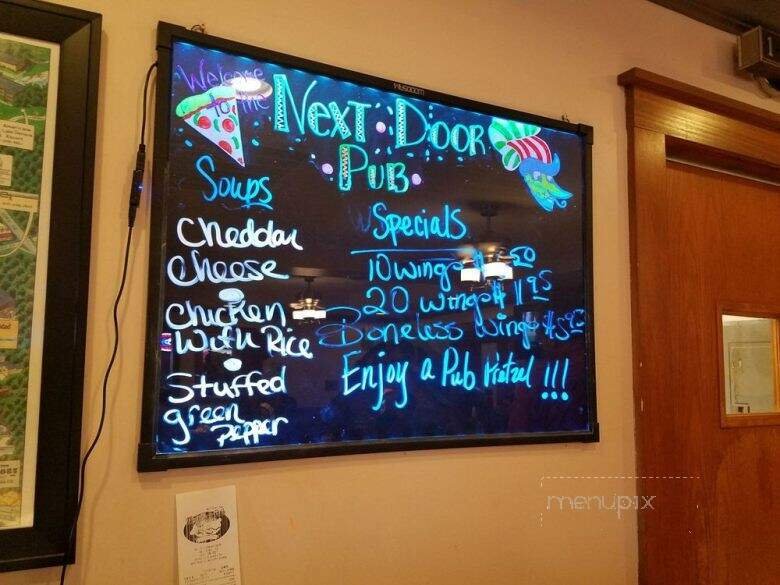 Welcome
to the
Next Door
Pub
Soups
Cheddar
Cheese
Chicken
With Rice
Stuffed
green
pepper
Specials
10 wings $
50
20 wings $ 11 95
Boneless Wings $5.95
Enjoy a Pub Pretzel !!!
menupix